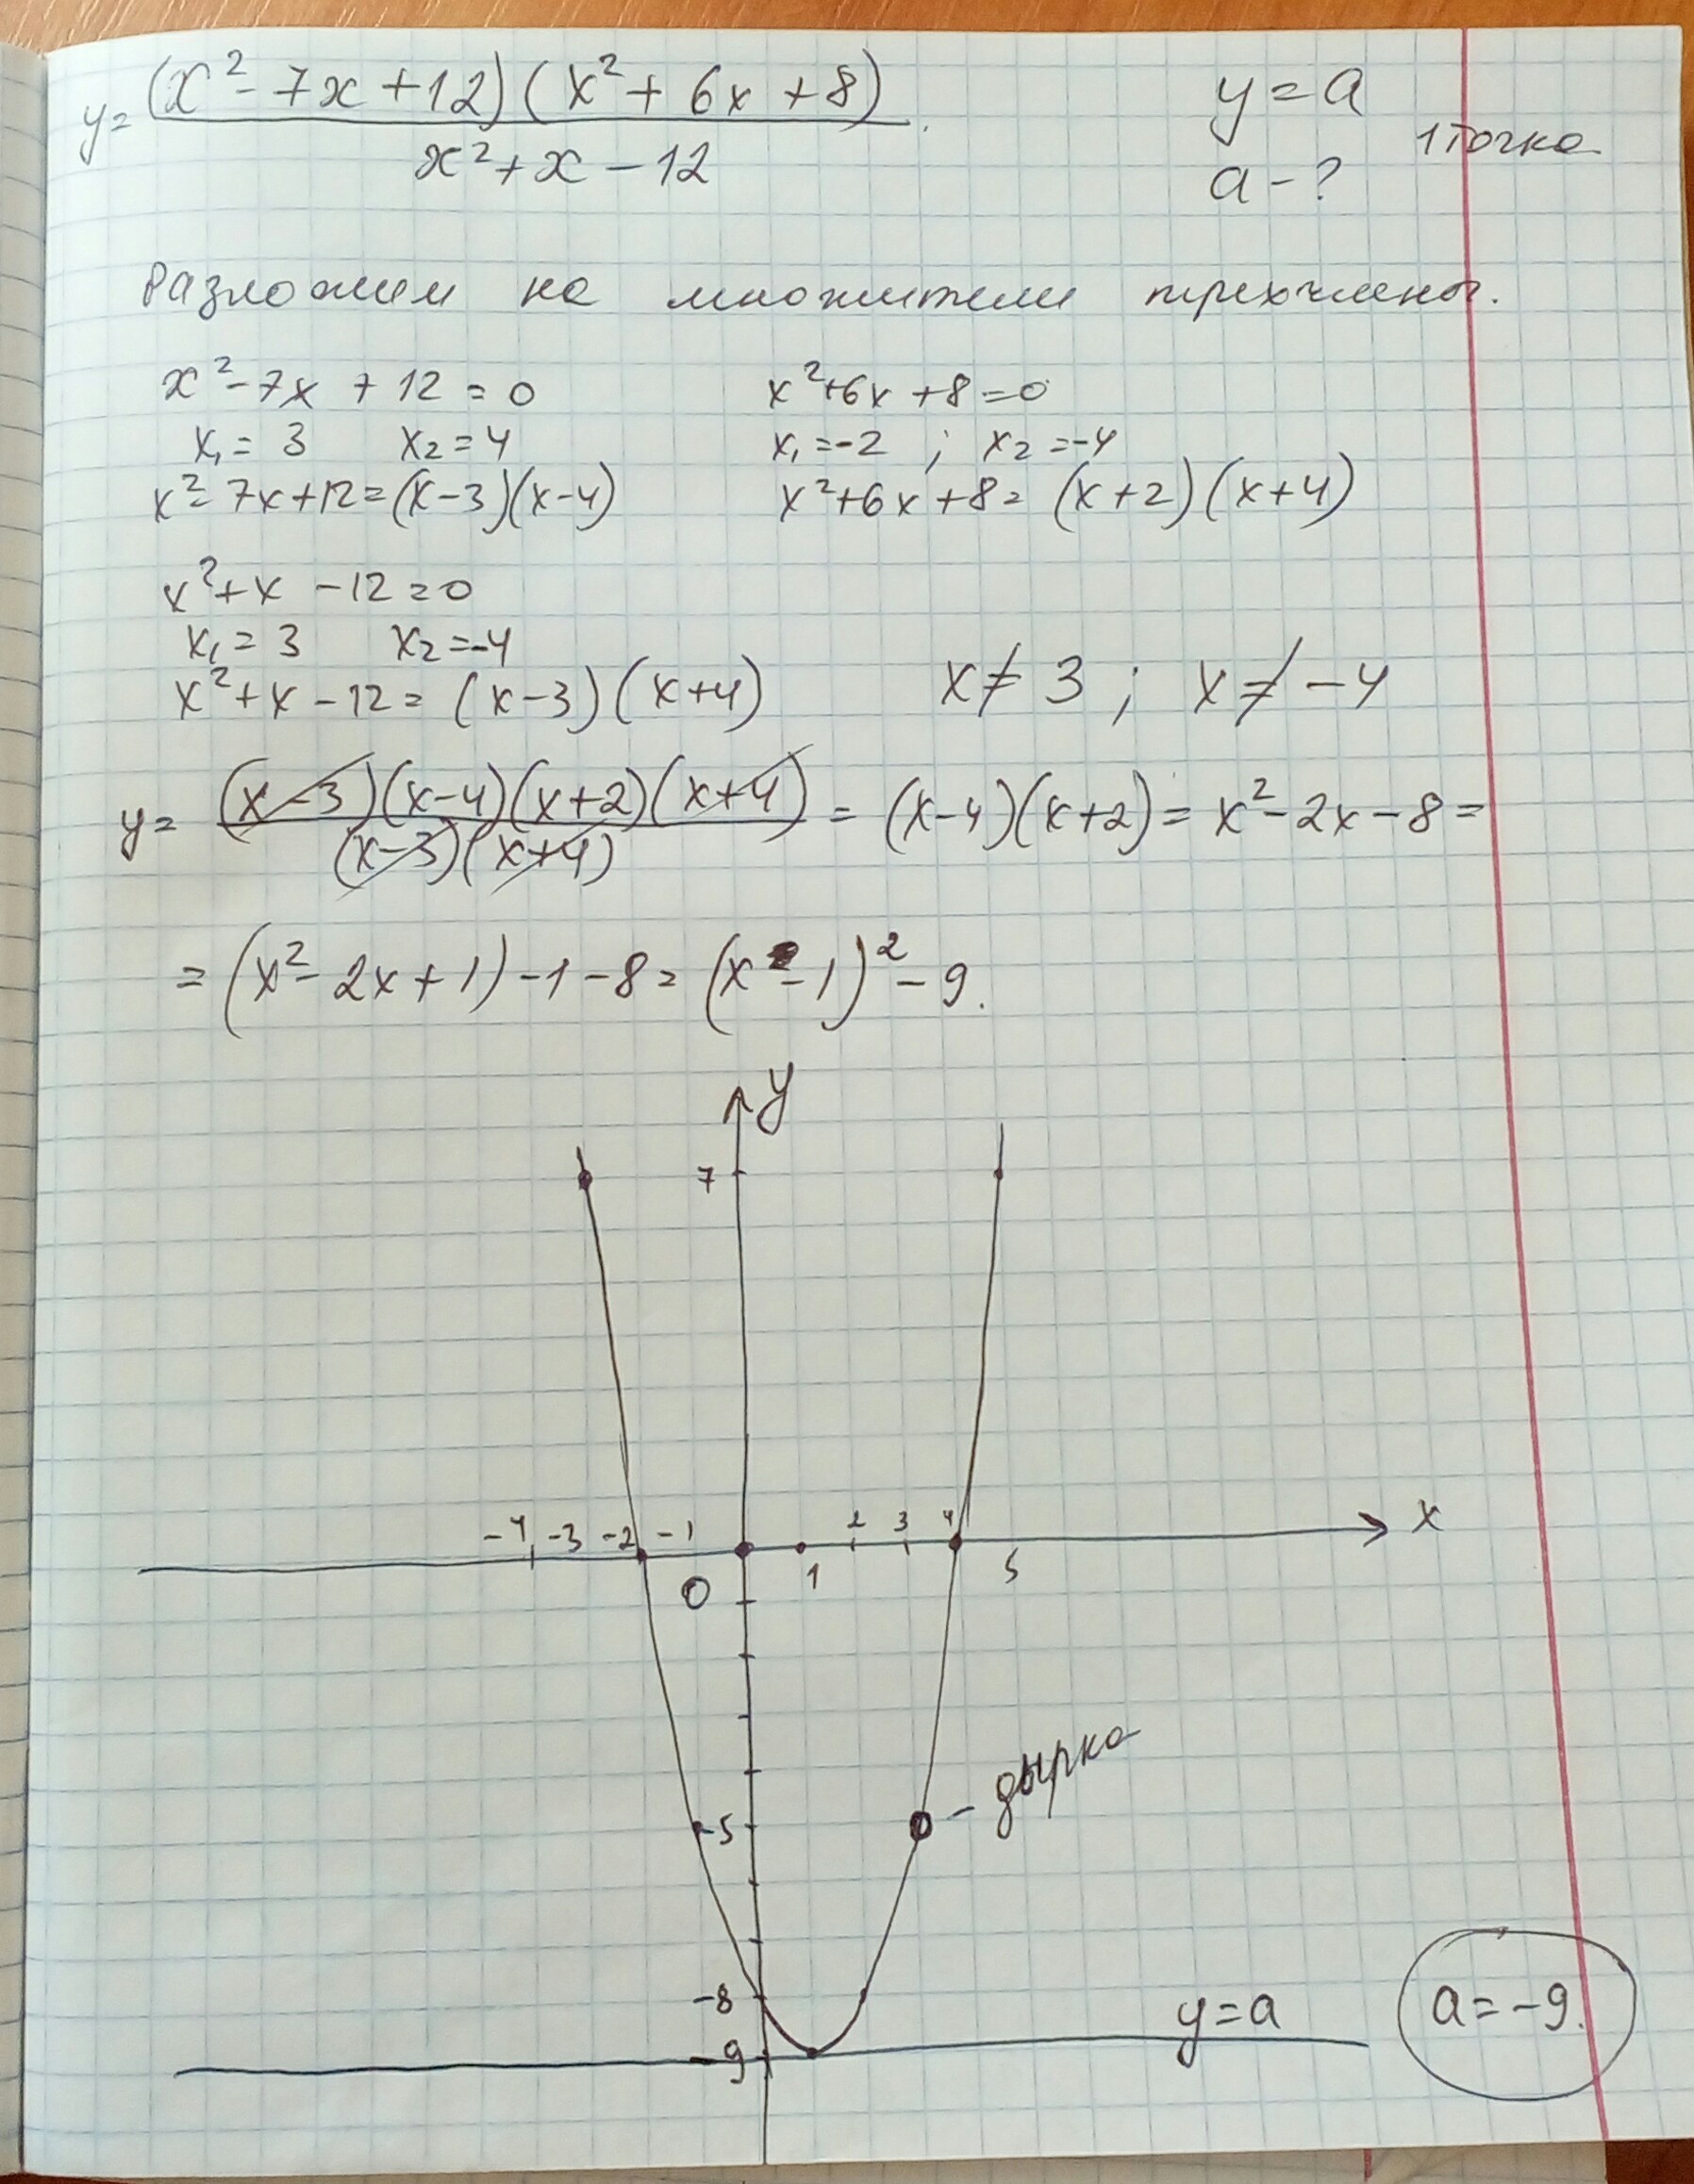 y= (x² - 7x + 12)(x² + 6x + 8) / x² + x - 12
y = a
1 точка
a - ?
Разложим на множители трехчлены.
x² - 7x + 12 = 0
x₁ = 3 x₂ = 4
x² - 7x + 12 = (x-3)(x-4)
x² + 6x + 8 = 0
x₁ = -2 ; x₂ = -4
x² + 6x + 8 = (x+2)(x+4)
x² + x - 12 = 0
x₁ = 3 x₂ = -4
x² + x - 12 = (x-3)(x+4)
x ≠ 3 ; x ≠ -4
y = (x-3)(x-4)(x+2)(x+4) / (x-3)(x+4) = (x-4)(x+2) = x² - 2x - 8 =
= (x² - 2x + 1) - 1 - 8 = (x - 1)² - 9.
y
7
-4 -3 -2 -1 2 3 4 x
0 1 5
- дырка
-5
-8
y = a
a = -9.
-9